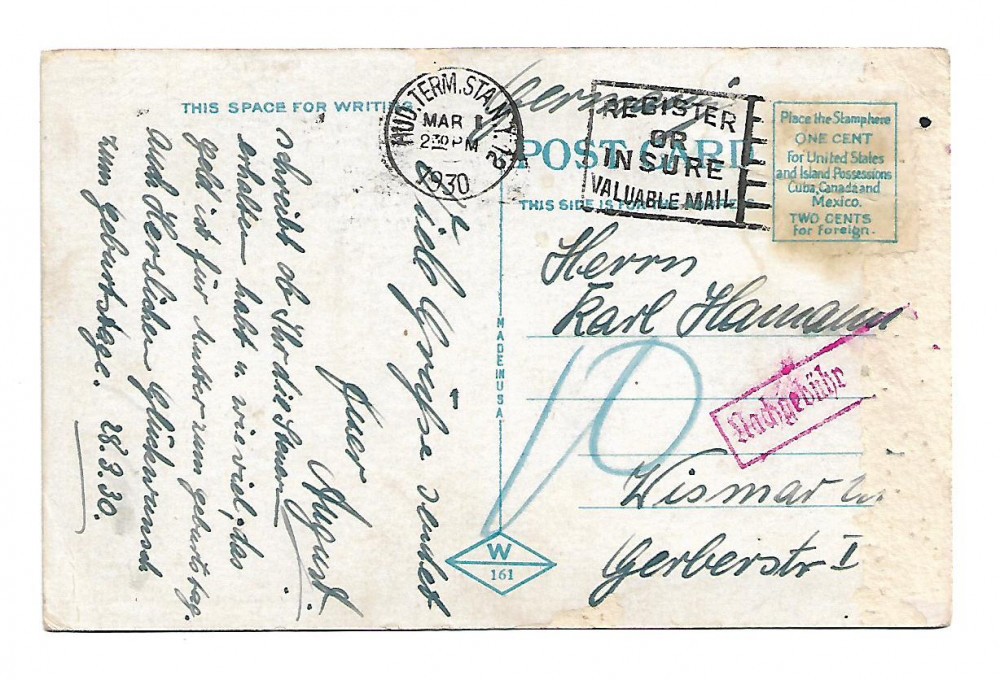 THIS SPACE FOR WRITING
Germany
POST CARD
THIS SIDE IS FOR
HUD. TERM. STA. N.Y. 12
MAR 1
2 30 PM
1930
REGISTER
OR
INSURE
VALUABLE MAIL
Place the Stamp here
ONE CENT
For United States
and Island Possessions
Cuba, Canada and
Mexico.
TWO CENTS
for Foreign.
Viele Grüße sendet
Euer August.
schreibt ob Ihr die Steuer
erhalten habt u. wieviel, das
Geld ist für Mutter zum Geburtstag.
Auch Herzlichen Glückwunsch
zum Geburtstage. 28.3.30.
1
MADE IN U S A
W
161
Herrn
Karl Hamann
10
Nachgebühr
Wismar
Gerberstr I